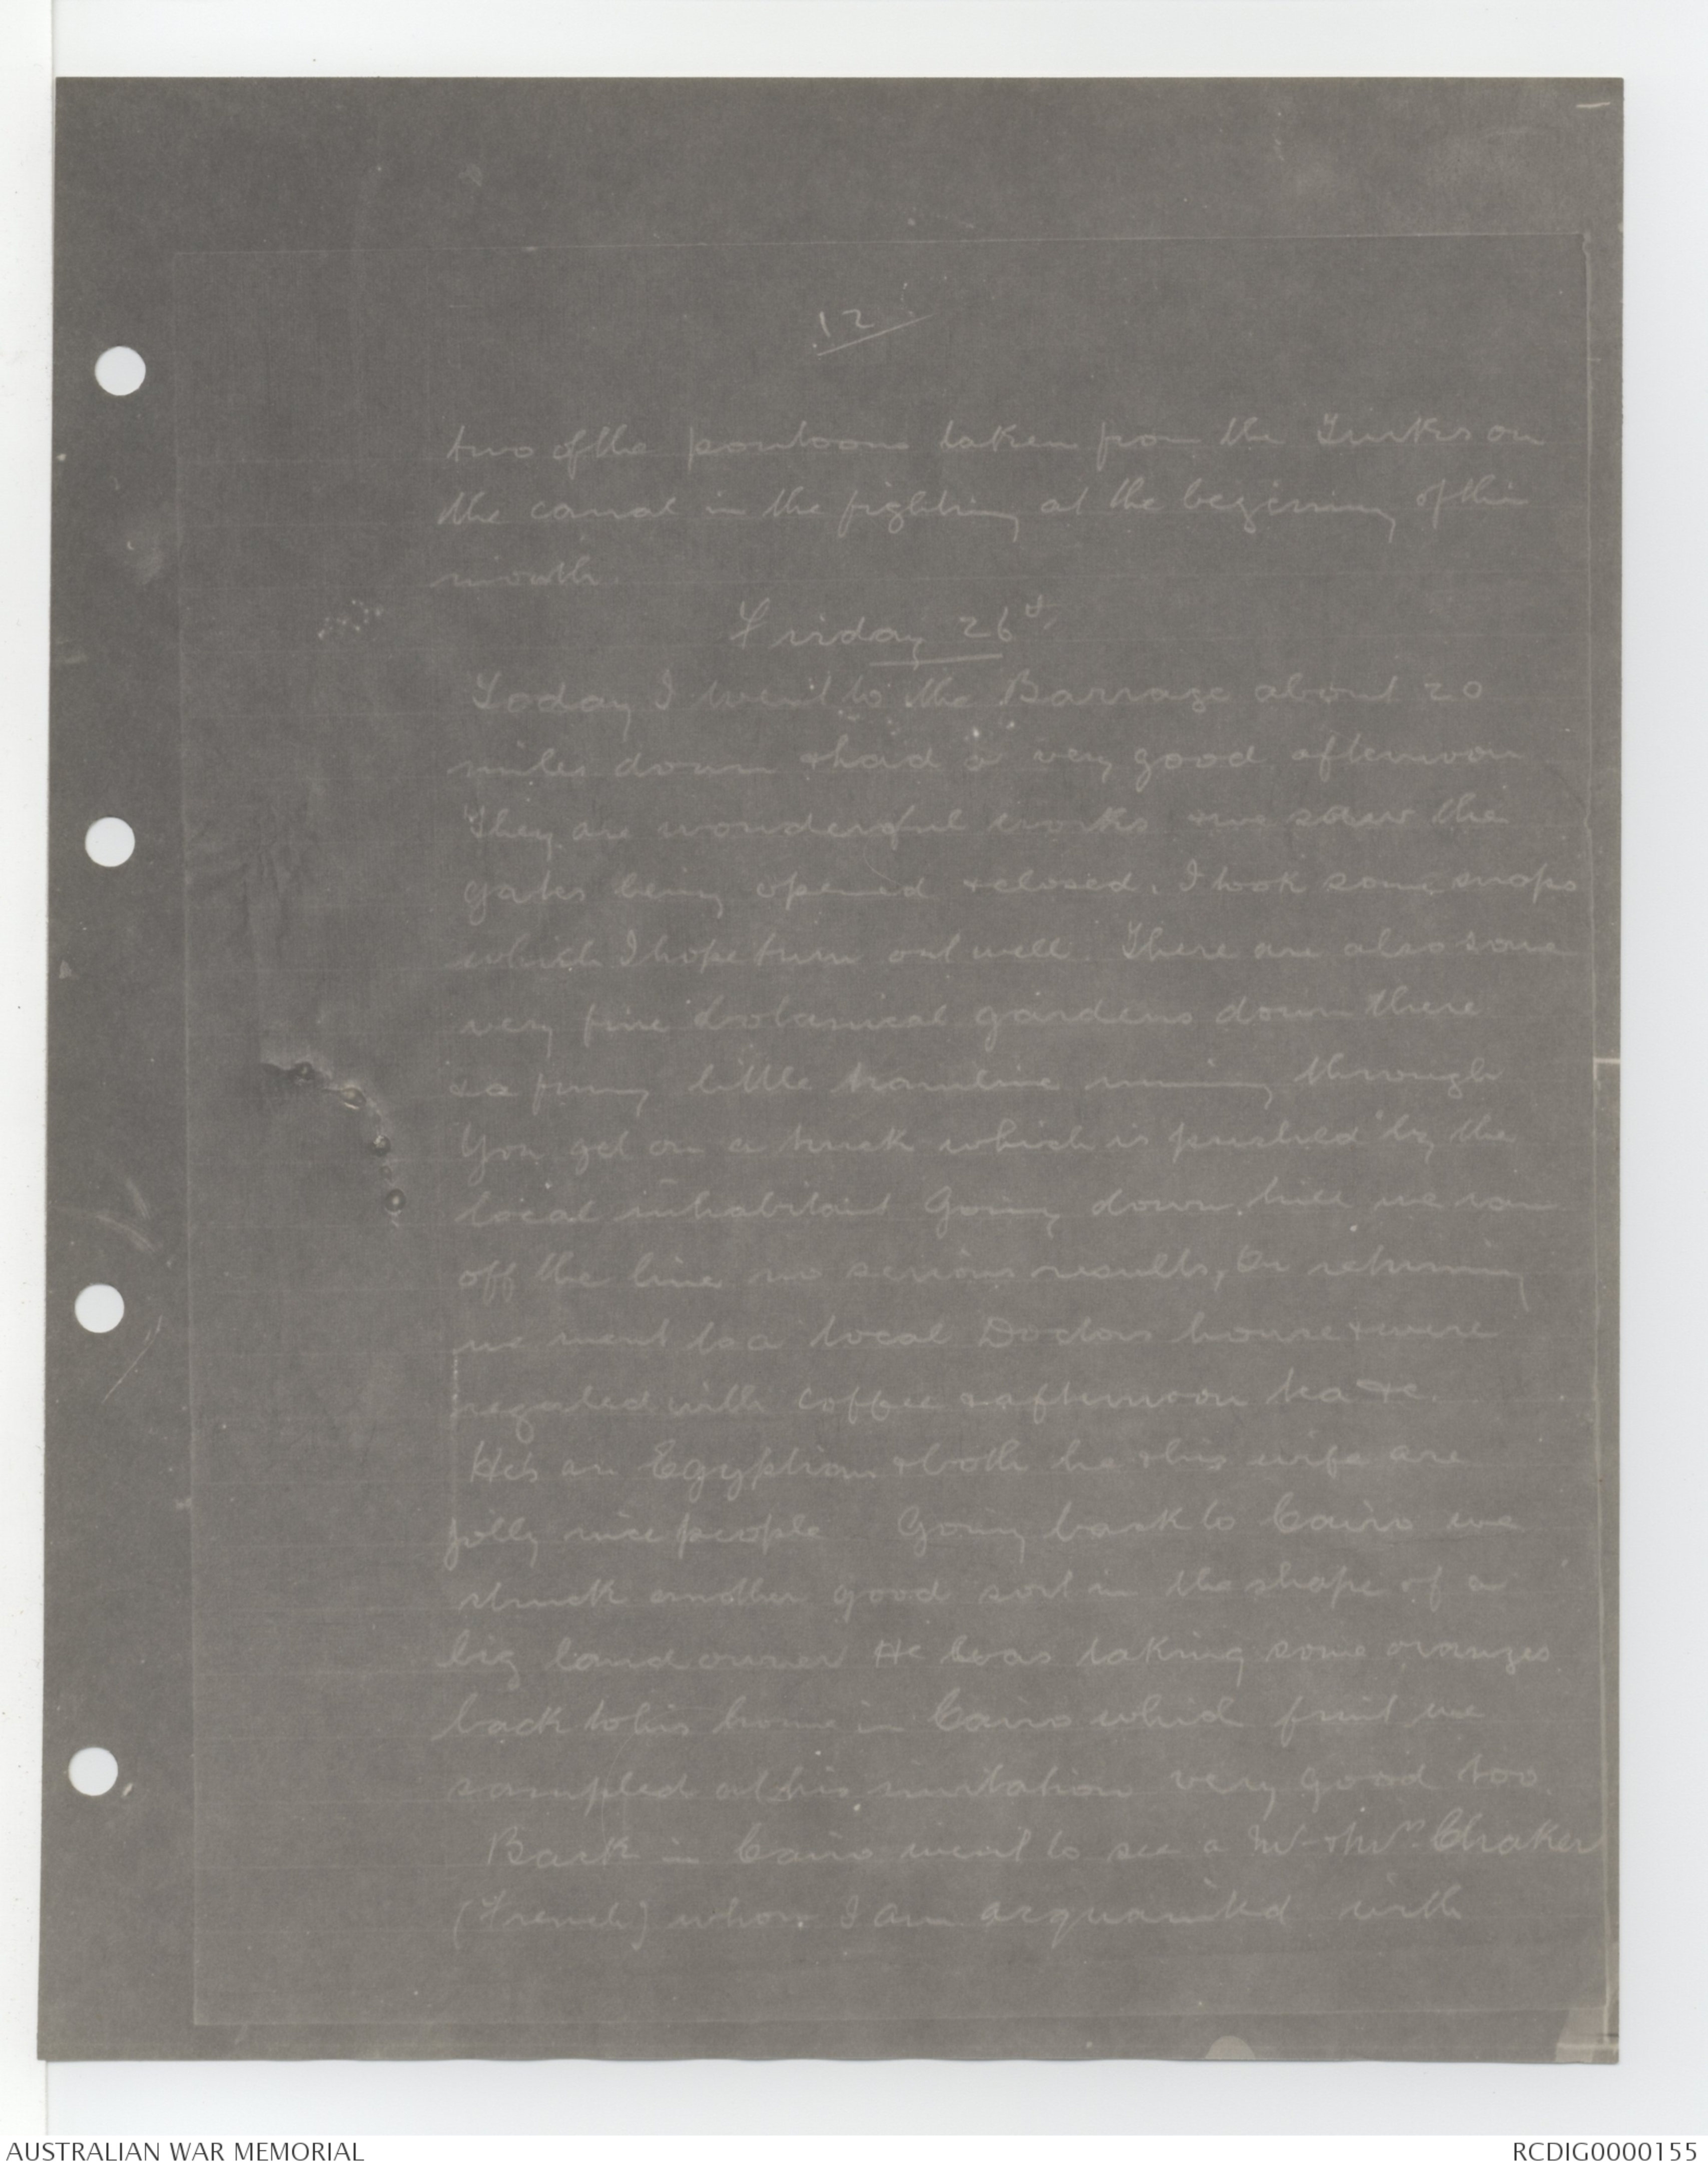 12
two of the pontoons taken from the Turkes on
the canal in the fighting at the beginning of this
month.
Friday 26th
Today I went to the Barrage about 20
miles down & had a very good afternoon
They are wonderful works & we saw the
gates being opened & closed. I took some snaps
which I hope turn out well. There are also some
very fine botanical gardens down there
& a funny little tramline running through
You get on a truck which is pushed by the
local inhabitant Going down hill we ran
off the line no serious results, On returning
we went to a local Doctors house & were
regaled with coffee & afternoon tea &c.
He's an Egyptian & both he & his wife are
jolly nice people Going back to Cairo we
struck another good sort in the shape of a
big land owner He was taking some oranges
back to his home in Cairo which fruit we
sampled at his invitation very good too
Back in Cairo went to see a Mr & Mrs Chaker
(French) whom I am acquainted with
AUSTRALIAN WAR MEMORIAL
RCDIG0000155